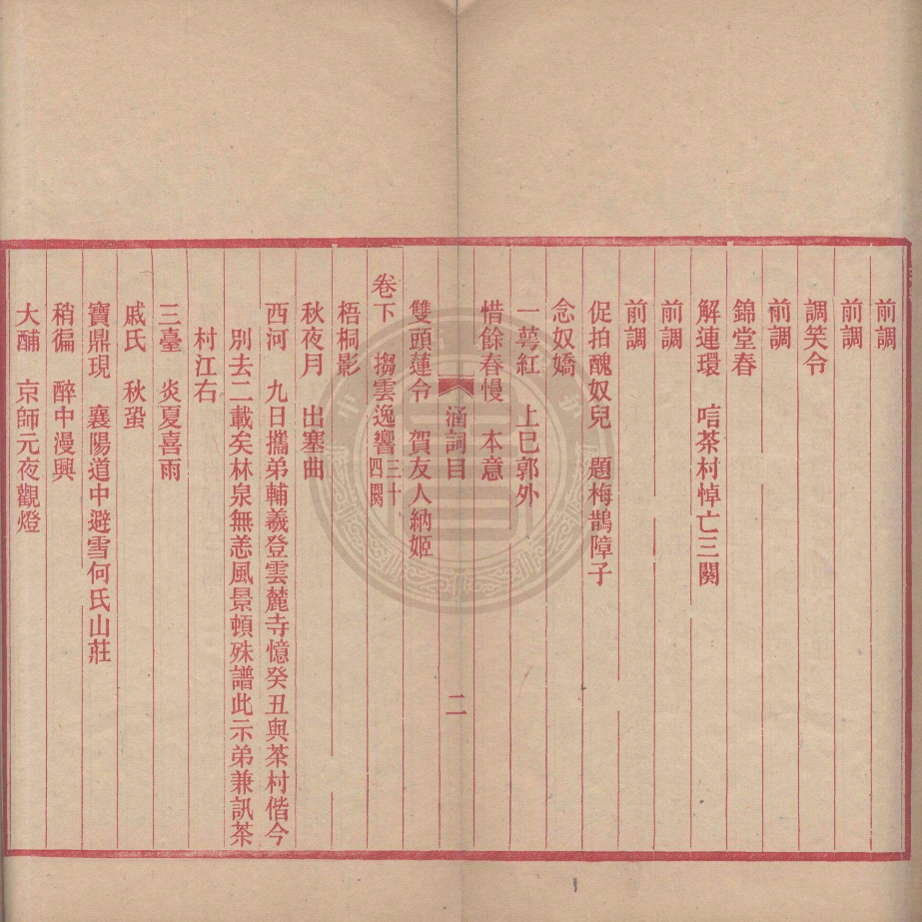 前調
前調
調笑令
前調
錦堂春
解連環　唁茶村悼亡三闋
前調
前調
促拍醜奴兒　題梅鵲障子
念奴嬌
一萼紅　上巳郭外
惜餘春慢　本意
涵詞目　二
雙頭蓮令　賀友人納姬
卷下　搊雲逸響三十四闋
梧桐影
秋夜月　出塞曲
西河　九日攜弟輔義登雲麓寺憶癸丑與茶村偕今
別去二載矣林泉無恙風景頓殊譜此示弟兼訊茶
村江右
三臺　炎夏喜雨
戚氏　秋蛩
寶鼎現　襄陽道中避雪何氏山莊
稍徧　醉中漫興
大酺　京師元夜觀燈